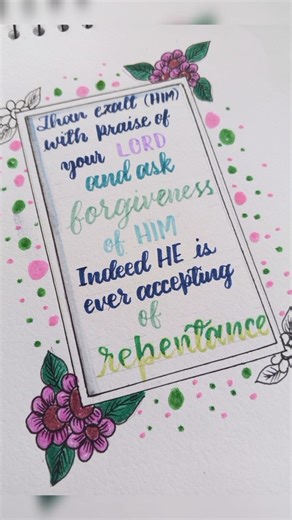 Than exalt (HIM)
with praise of
your LORD
and ask
forgiveness
of HIM
Indeed HE is
ever accepting
of
repentance